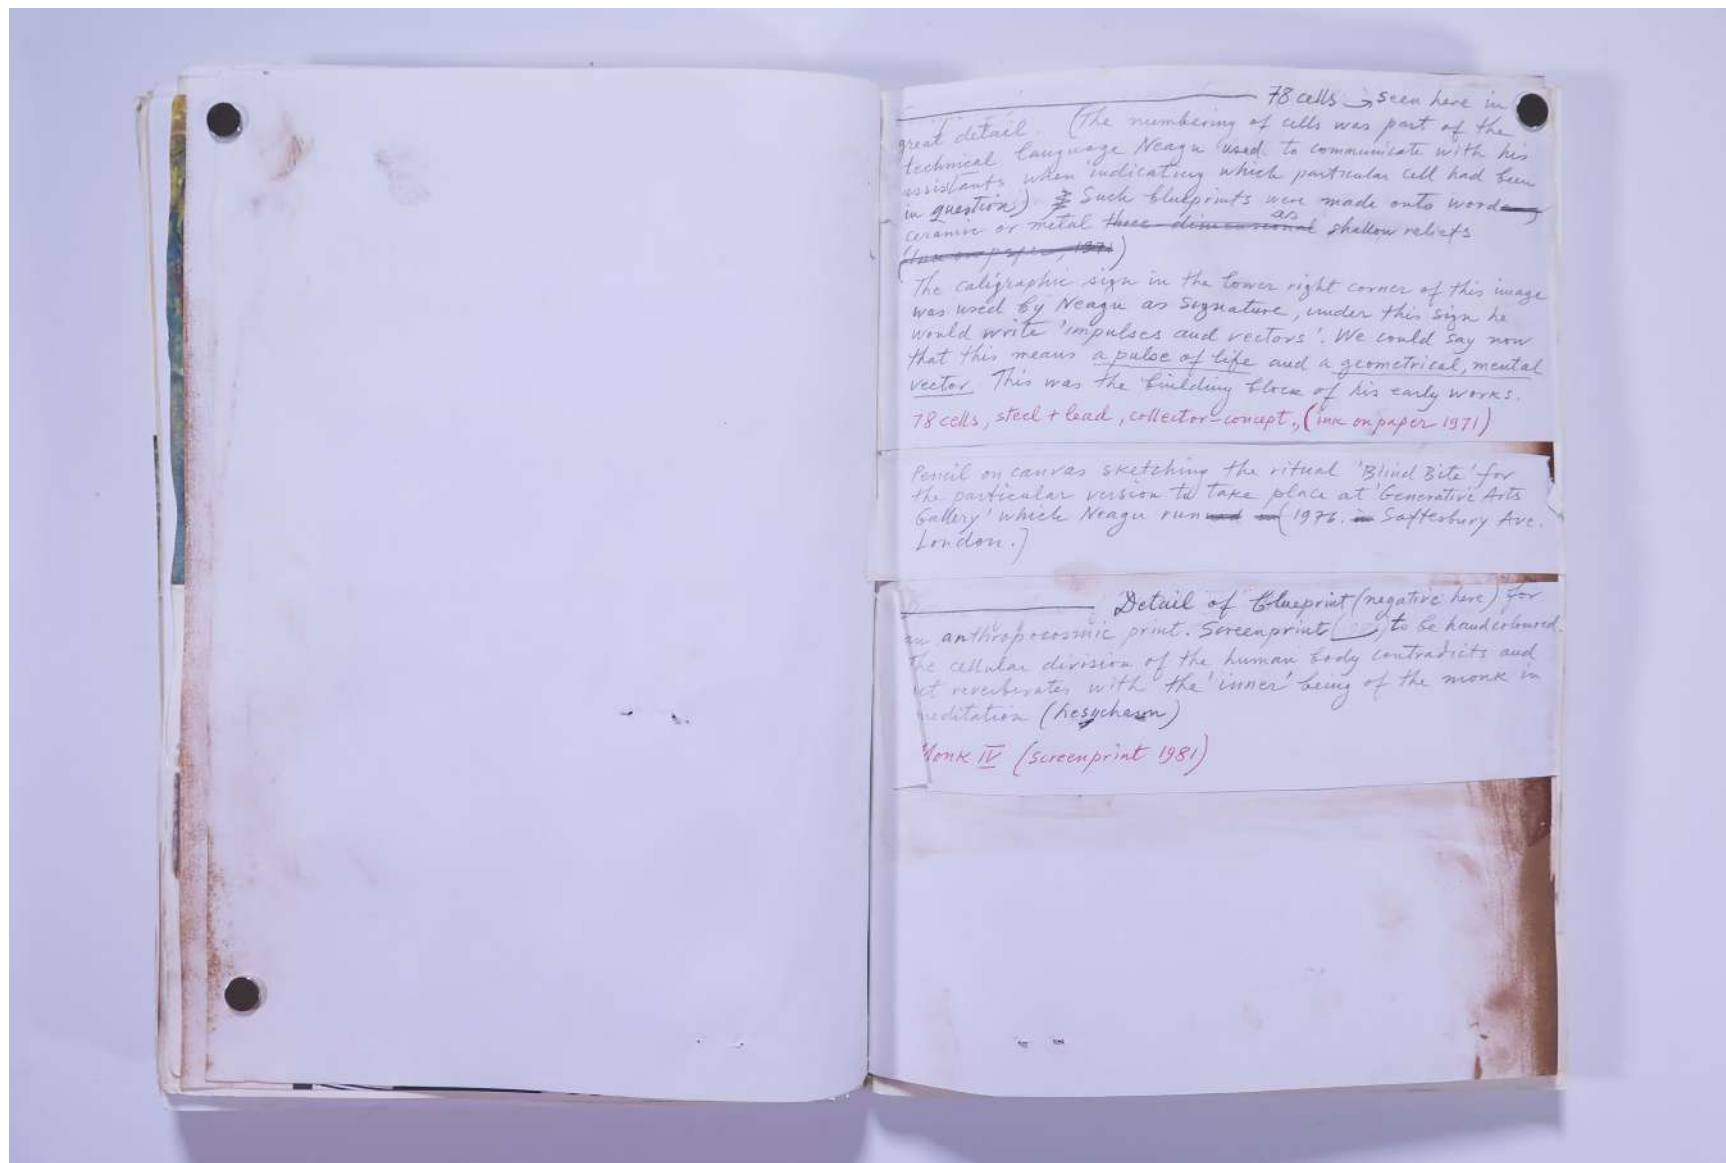 78 cells → seen here in
great detail. (The numbering of cells was part of the
technical language Neagu used to communicate with his
assistants when indicating which particular cell had been
in question) Such blueprints were made onto wood
ceramic or metal three-dimensional as shallow reliefs
(ink on paper, 1971)
The caligraphic sign in the lower right corner of this image
was used by Neagu as Signature, under this sign he
would write 'impulses and vectors'. We could say now
that this means a pulse of life and a geometrical, mental
vector. This was the building block of his early works.
78 cells, steel + lead, collector-concept, (ink on paper 1971)
Pencil on canvas sketching the ritual 'Blind Bite' for
the particular version to take place at 'Generative Arts
Gallery' which Neagu run (1976. Saftesbury Ave.
London.]
Detail of blueprint (negative here) for
an anthropocosmic print. Screenprint to be handcoloured.
The cellular division of the human body contradicts and
yet reverberates with the 'inner' being of the monk in
meditation (hesychasm)
Monk IV (screenprint 1981)